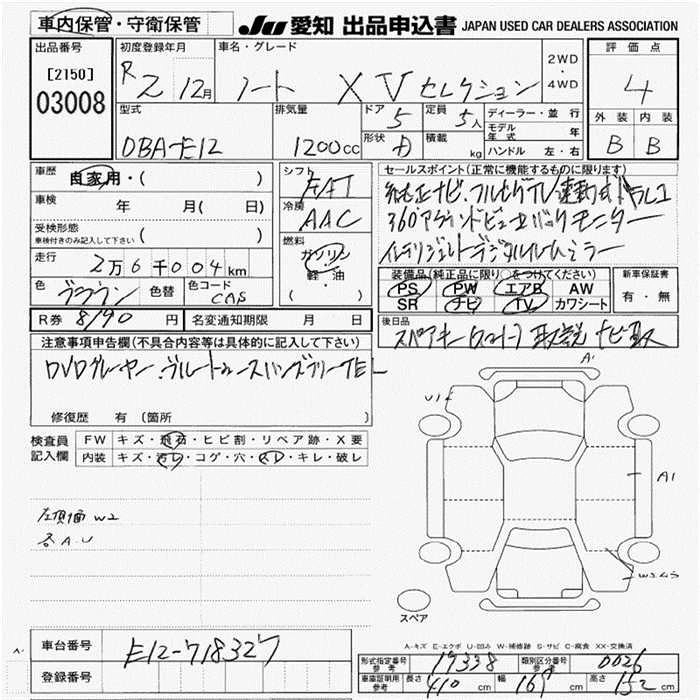 車内保管・守衛保管 JU 愛知 出品申込書 JAPAN USED CAR DEALERS ASSOCIATION
出品番号 初度登録年月 車名・グレード 2WD ・ 4WD 評価点
[2150] R2 12月 ノート X Vセレクション 4
03008
型式 排気量 ドア 5 定員 5人 ディーラー・並行 外装 内装
モデル年式
DBA-E12 1200cc 形状 積載 kg ハンドル 左・右 B B
車歴 自家用・( ) シフト セールスポイント(正常に機能するものに限ります)
FAT 純正ナビ.フルセグTV連動式ドラレコ
車検 年 月( 日) 冷房 360°アラウンドビュー バックモニター
AAC
受検形態 ( )
車検付きのみ記入して下さい
インテリジェントデジタルルームミラー
走行 2万6千004km 燃料 ガソリン・軽・油 ( )
装備品(純正品に限り○をつけてください) 新車保証書
色 ブラウン 色替 色コード CAS
PS PW エアB AW 有・無
SR ナビ TV カワシート
R券 8190円 名変通知期限 月 日
後日品 スペアキー 取説 ナビ取
注意事項申告欄(不具合内容等は具体的に記入して下さい)
DVDプレーヤー.ブルートゥースハンズフリーTEL
A1
U1
修復歴 有 (箇所
検査員記入欄 FW キズ・飛石・ヒビ割・リペア跡・X要
内装 キズ・汚レ・コゲ・穴・スレ・キレ・破レ
A1
W2
各A.U
スペア
A-キズ E-エクボ U-凹み W-補修跡 S-サビ C-腐食 XX-交換済
車台番号 E12-718327
形式指定番号 参考 19338 類別区分番号 参考 0026
登録番号
車庫証明用 参考 長さ 410 cm 幅 169 cm 高さ 152 cm